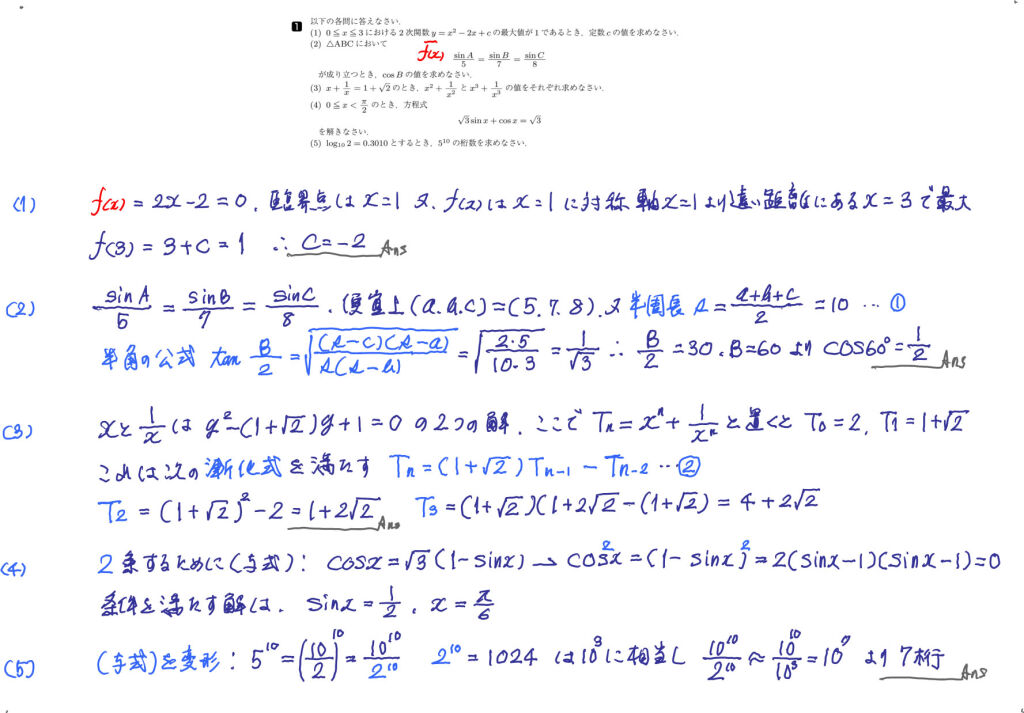 1 以下の各問に答えなさい.
(1) 0≦x≦3における2次関数 y = x² − 2x + c の最大値が1であるとき, 定数cの値を求めなさい.
(2) △ABC において
f(x)
sin A/5 = sin B/7 = sin C/8
が成り立つとき, cos B の値を求めなさい.
(3) x + 1/x = 1 + √2 のとき, x² + 1/x² と x³ + 1/x³ の値をそれぞれ求めなさい.
(4) 0≦x< π/2 のとき, 方程式
√3 sin x + cos x = √3
を解きなさい.
(5) log₁₀ 2 = 0.3010 とするとき, 5¹⁰ の桁数を求めなさい.
(1) f(x) = 2x-2=0. 臨界点は x=1 又, f(x)は x=1 に対称 軸x=1より遠い距離にあるx=3で最大
f(3) = 3+C = 1 ∴ C=-2 Ans
(2) sinA/5 = sinB/7 = sinC/8 . 便宜上(a.b.c)=(5.7.8).又 半周長 s = a+b+c/2 =10 … ①
半角の公式 tan B/2 = √(s-c)(s-a)/s(s-b) = √2・5/10・3 = 1/√3 ∴ B/2 =30. B=60 より COS60°=1/2 Ans
(3) xと 1/x は y²-(1+√2)y+1=0 の2つの解. ここで Tn=xⁿ+ 1/xⁿ と置くと T₀=2, T₁=1+√2
これは次の漸化式を満たす Tn=(1+√2)Tn-1 - Tn-2 …②
T₂ = (1+√2)²-2=1+2√2 Ans T₃=(1+√2)(1+2√2-(1+√2) = 4+2√2
(4) 2乗するために(与式): cosx=√3(1-sinx) → cos²x=(1-sinx)²=2(sinx-1)(sinx-1)=0
条件を満たす解は. sinx=1/2 . x=π/6
(5) (与式)を変形: 5¹⁰=(10/2)¹⁰=10¹⁰/2¹⁰ 2¹⁰=1024 は10³に相当し 10¹⁰/2¹⁰≈10¹⁰/10³=10⁷ より 7桁 Ans